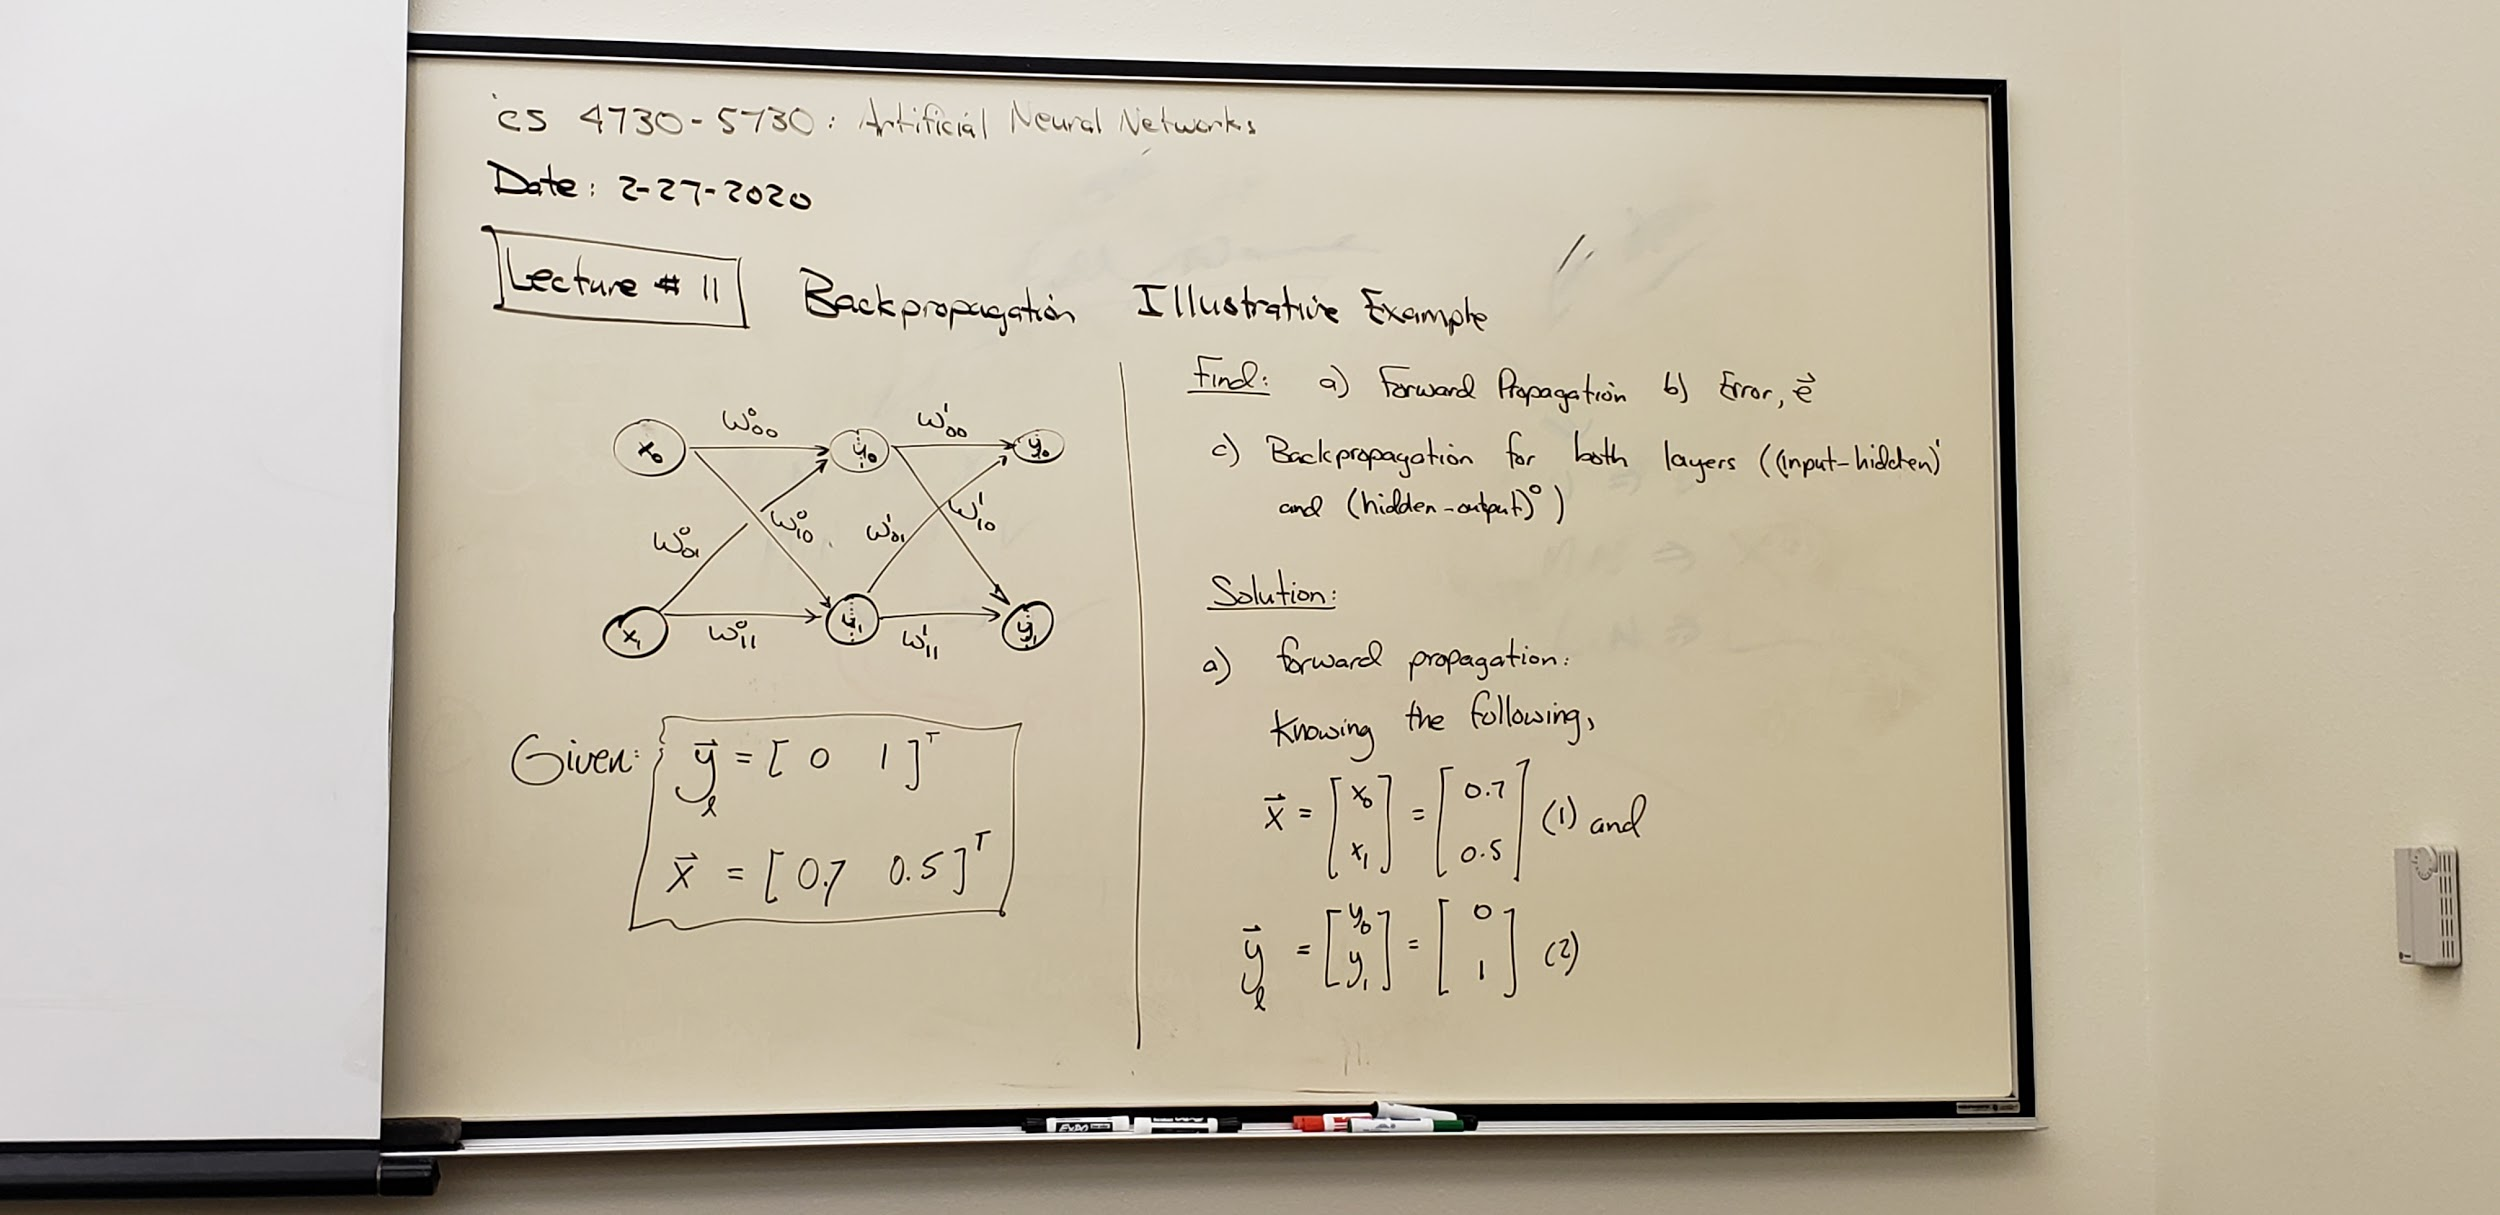 CS 4730-5730: Artificial Neural Networks
Date: 2-27-2020
Lecture # 11 Backpropagation Illustrative Example
x₀ w⁰₀₀ y₀ w¹₀₀ y₀
w⁰₀₁ w⁰₁₀ w¹₀₁ w¹₁₀
x₁ w⁰₁₁ y₁ w¹₁₁ y₁
Given: y⃗ₗ = [ 0 1 ]ᵀ
x⃗ = [ 0.7 0.5 ]ᵀ
Find: a) Forward Propagation b) Error, e⃗
c) Backpropagation for both layers ((input-hidden)¹
and (hidden-output)⁰)
Solution:
a) forward propagation:
Knowing the following,
x⃗ = [x₀ x₁] = [0.7 0.5] (1) and
y⃗ₗ = [y₀ y₁] = [0 1] (2)
EXPO